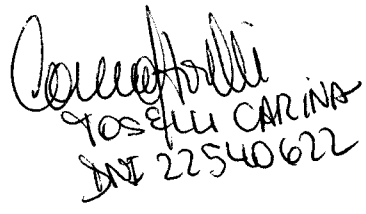 TOSELLI CARINA
DNI 22540622